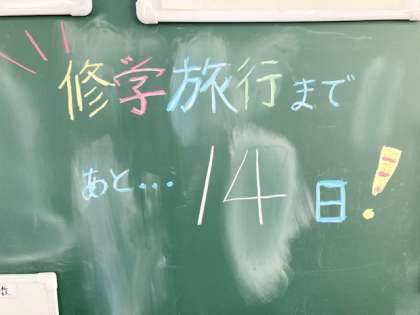 修学旅行まで
あと...14日!